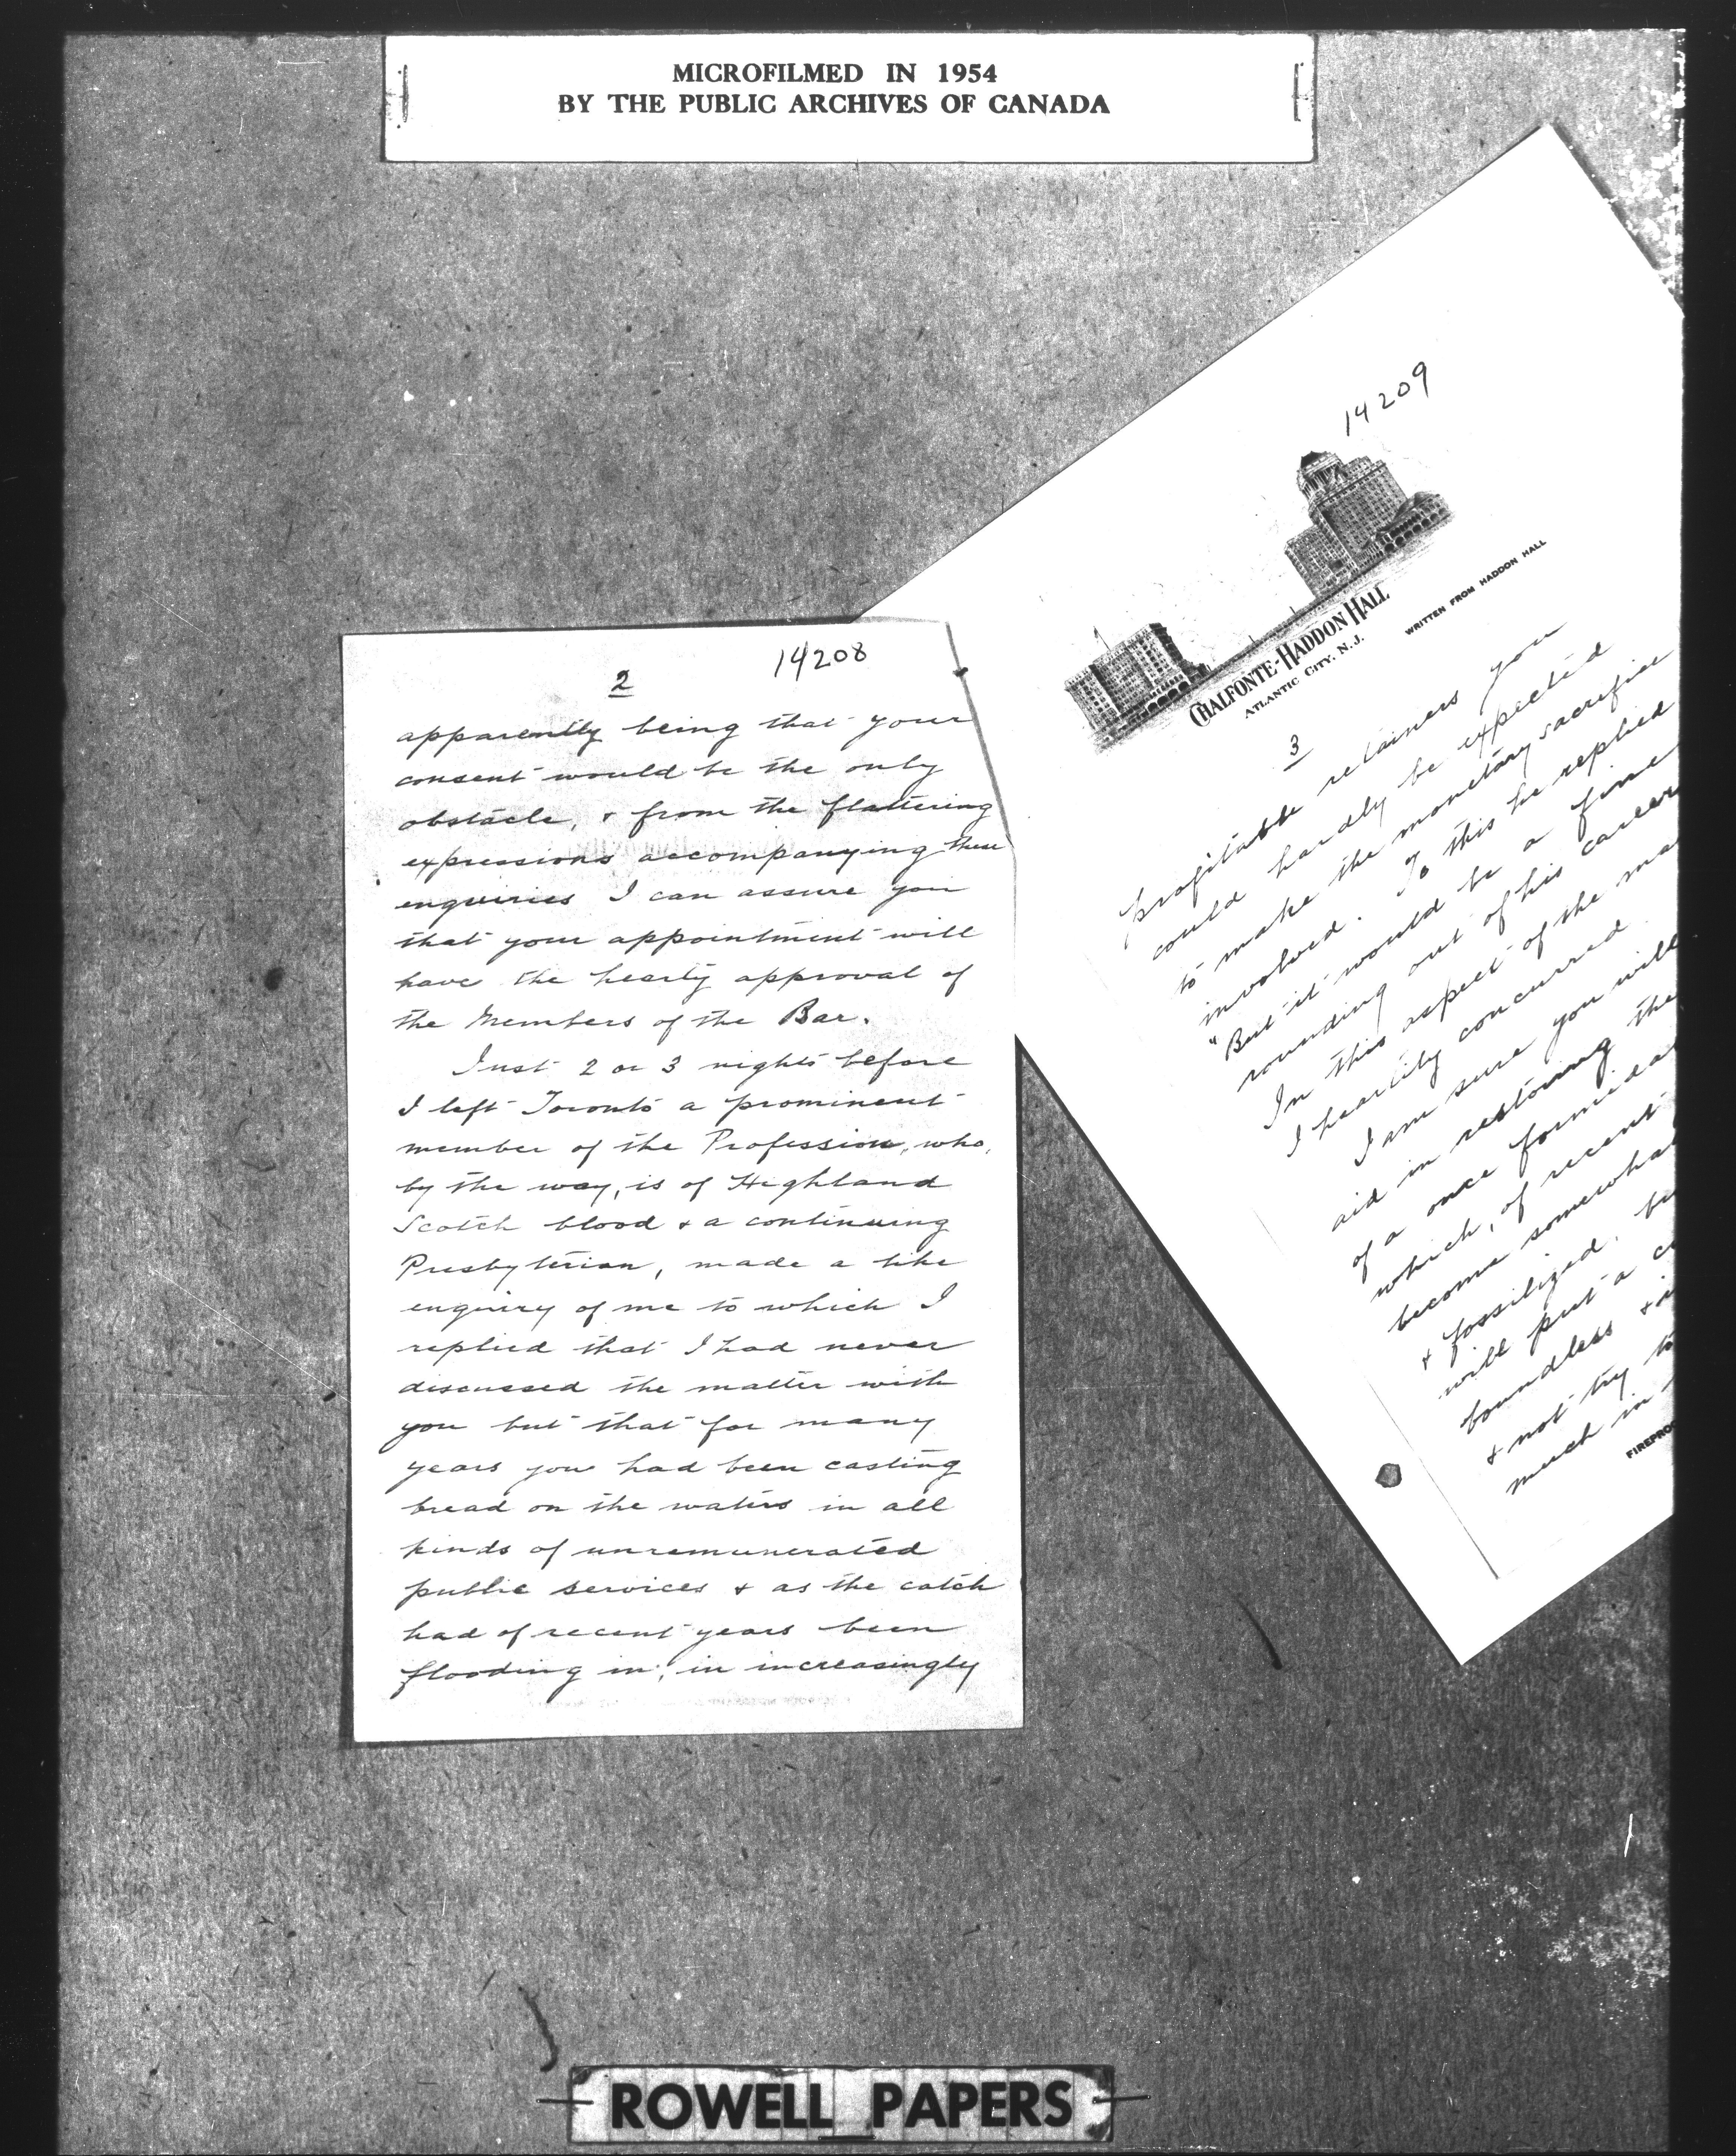 MICROFILMED IN 1954
BY THE PUBLIC ARCHIVES OF CANADA
14208
2
apparently being that your
consent would be the only
obstacle, & from the flattering
expressions accompanying these
enquiries I can assure you
that your appointment will
have the hearty approval of
the Members of the Bar.
Just 2 or 3 nights before
I left Toronto a prominent
member of the Profession, who,
by the way, is of Highland
Scotch blood & a continuing
Presbyterian, made a like
enquiry of me to which I
replied that I had never
discussed the matter with
you but that for many
years you had been casting
bread on the waters in all
kinds of unremunerated
public services & as the catch
had of recent years been
flooding in, in increasingly
14209
CHALFONTE-HADDON HALL
ATLANTIC CITY, N.J.
WRITTEN FROM HADDON HALL
3
profitable retainers you
could hardly be expected
to make the monetary sacrifice
involved. To this he replied
"But it would be a fine
rounding out of his career
In this aspect of the ma
I heartily concurred
I am sure you will
aid in restoring the
of a once formida
which, of recent
become somewha
& fossilized, bu
will put a c
boundless & i
& not try to
much in
FIREPRO
ROWELL PAPERS